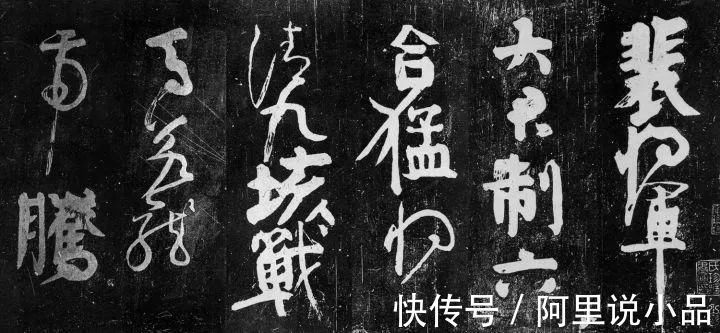 裴將軍
大君制六
合猛將
清九垓戰
馬若龍
虎騰
快传号 / 阿里说小品